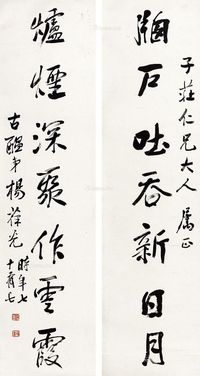 子莊仁兄大人屬正
牖戶吐吞新日月
爐煙深聚作雲霞
古醞弟楊葆光時年七
十有七